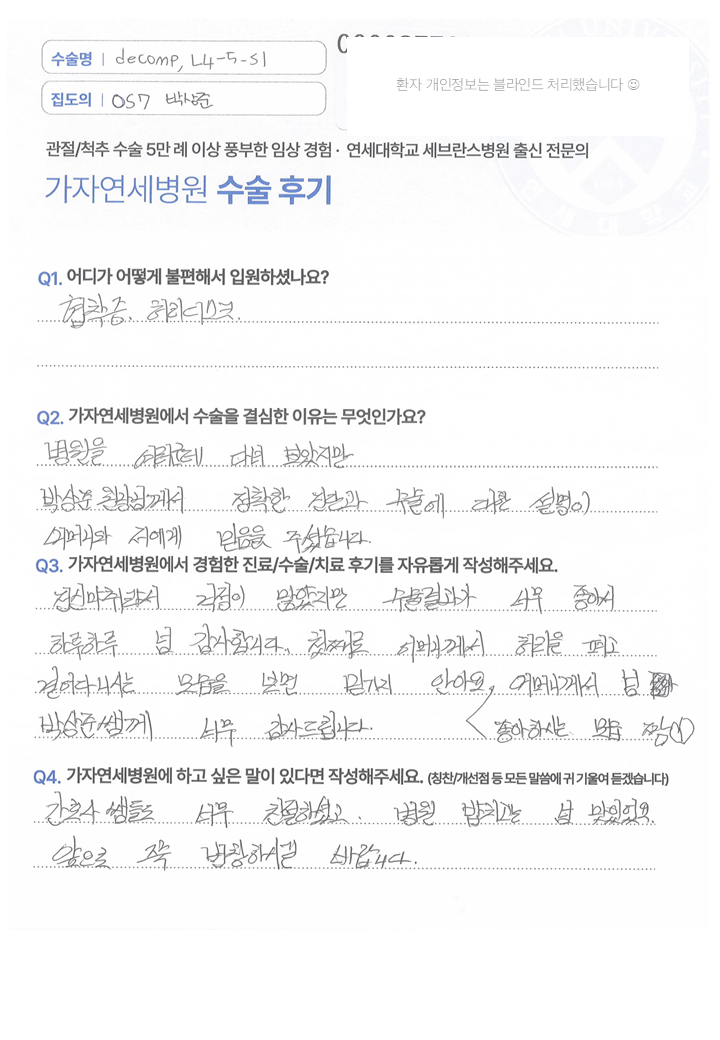 수술명 | decomp, L4-5-S1
집도의 | OS7 박상준
환자 개인정보는 블라인드 처리했습니다 ☺
관절/척추 수술 5만 례 이상 풍부한 임상 경험 · 연세대학교 세브란스병원 출신 전문의
가자연세병원 수술 후기
Q1. 어디가 어떻게 불편해서 입원하셨나요?
협착증, 허리디스크.
Q2. 가자연세병원에서 수술을 결심한 이유는 무엇인가요?
병원을 여러군데 다녀 보았지만
박상준 원장님께서 정확한 진단과 수술에 대한 설명이
어머니와 저에게 믿음을 주셨습니다.
Q3. 가자연세병원에서 경험한 진료/수술/치료 후기를 자유롭게 작성해주세요.
전신마취라서 걱정이 많았지만 수술결과가 너무 좋아서
하루하루 넘 감사합니다. 첫째로 어머니께서 허리을 펴고
걸어다니시는 모습을 보면 믿기지 안아요, 어머니께서 넘
좋아하시는 모습 짱
박상준쌤께 너무 감사드립니다.
Q4. 가자연세병원에 하고 싶은 말이 있다면 작성해주세요. (칭찬/개선점 등 모든 말씀에 귀 기울여 듣겠습니다)
간호사 쌤들도 너무 친절하셨고. 병원 밥치고는 넘 맛있었요.
앞으로 쭈욱 번창하시길 바랍니다.